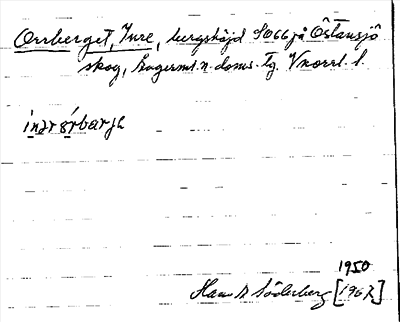 Orrberget, Inre, bergshöjd SO66 på Östansjö
skog, Ångerml. n. doms. Tg. Vnorrl. l.
ínər órbarjə
1950
Hans B Söderberg [1967]